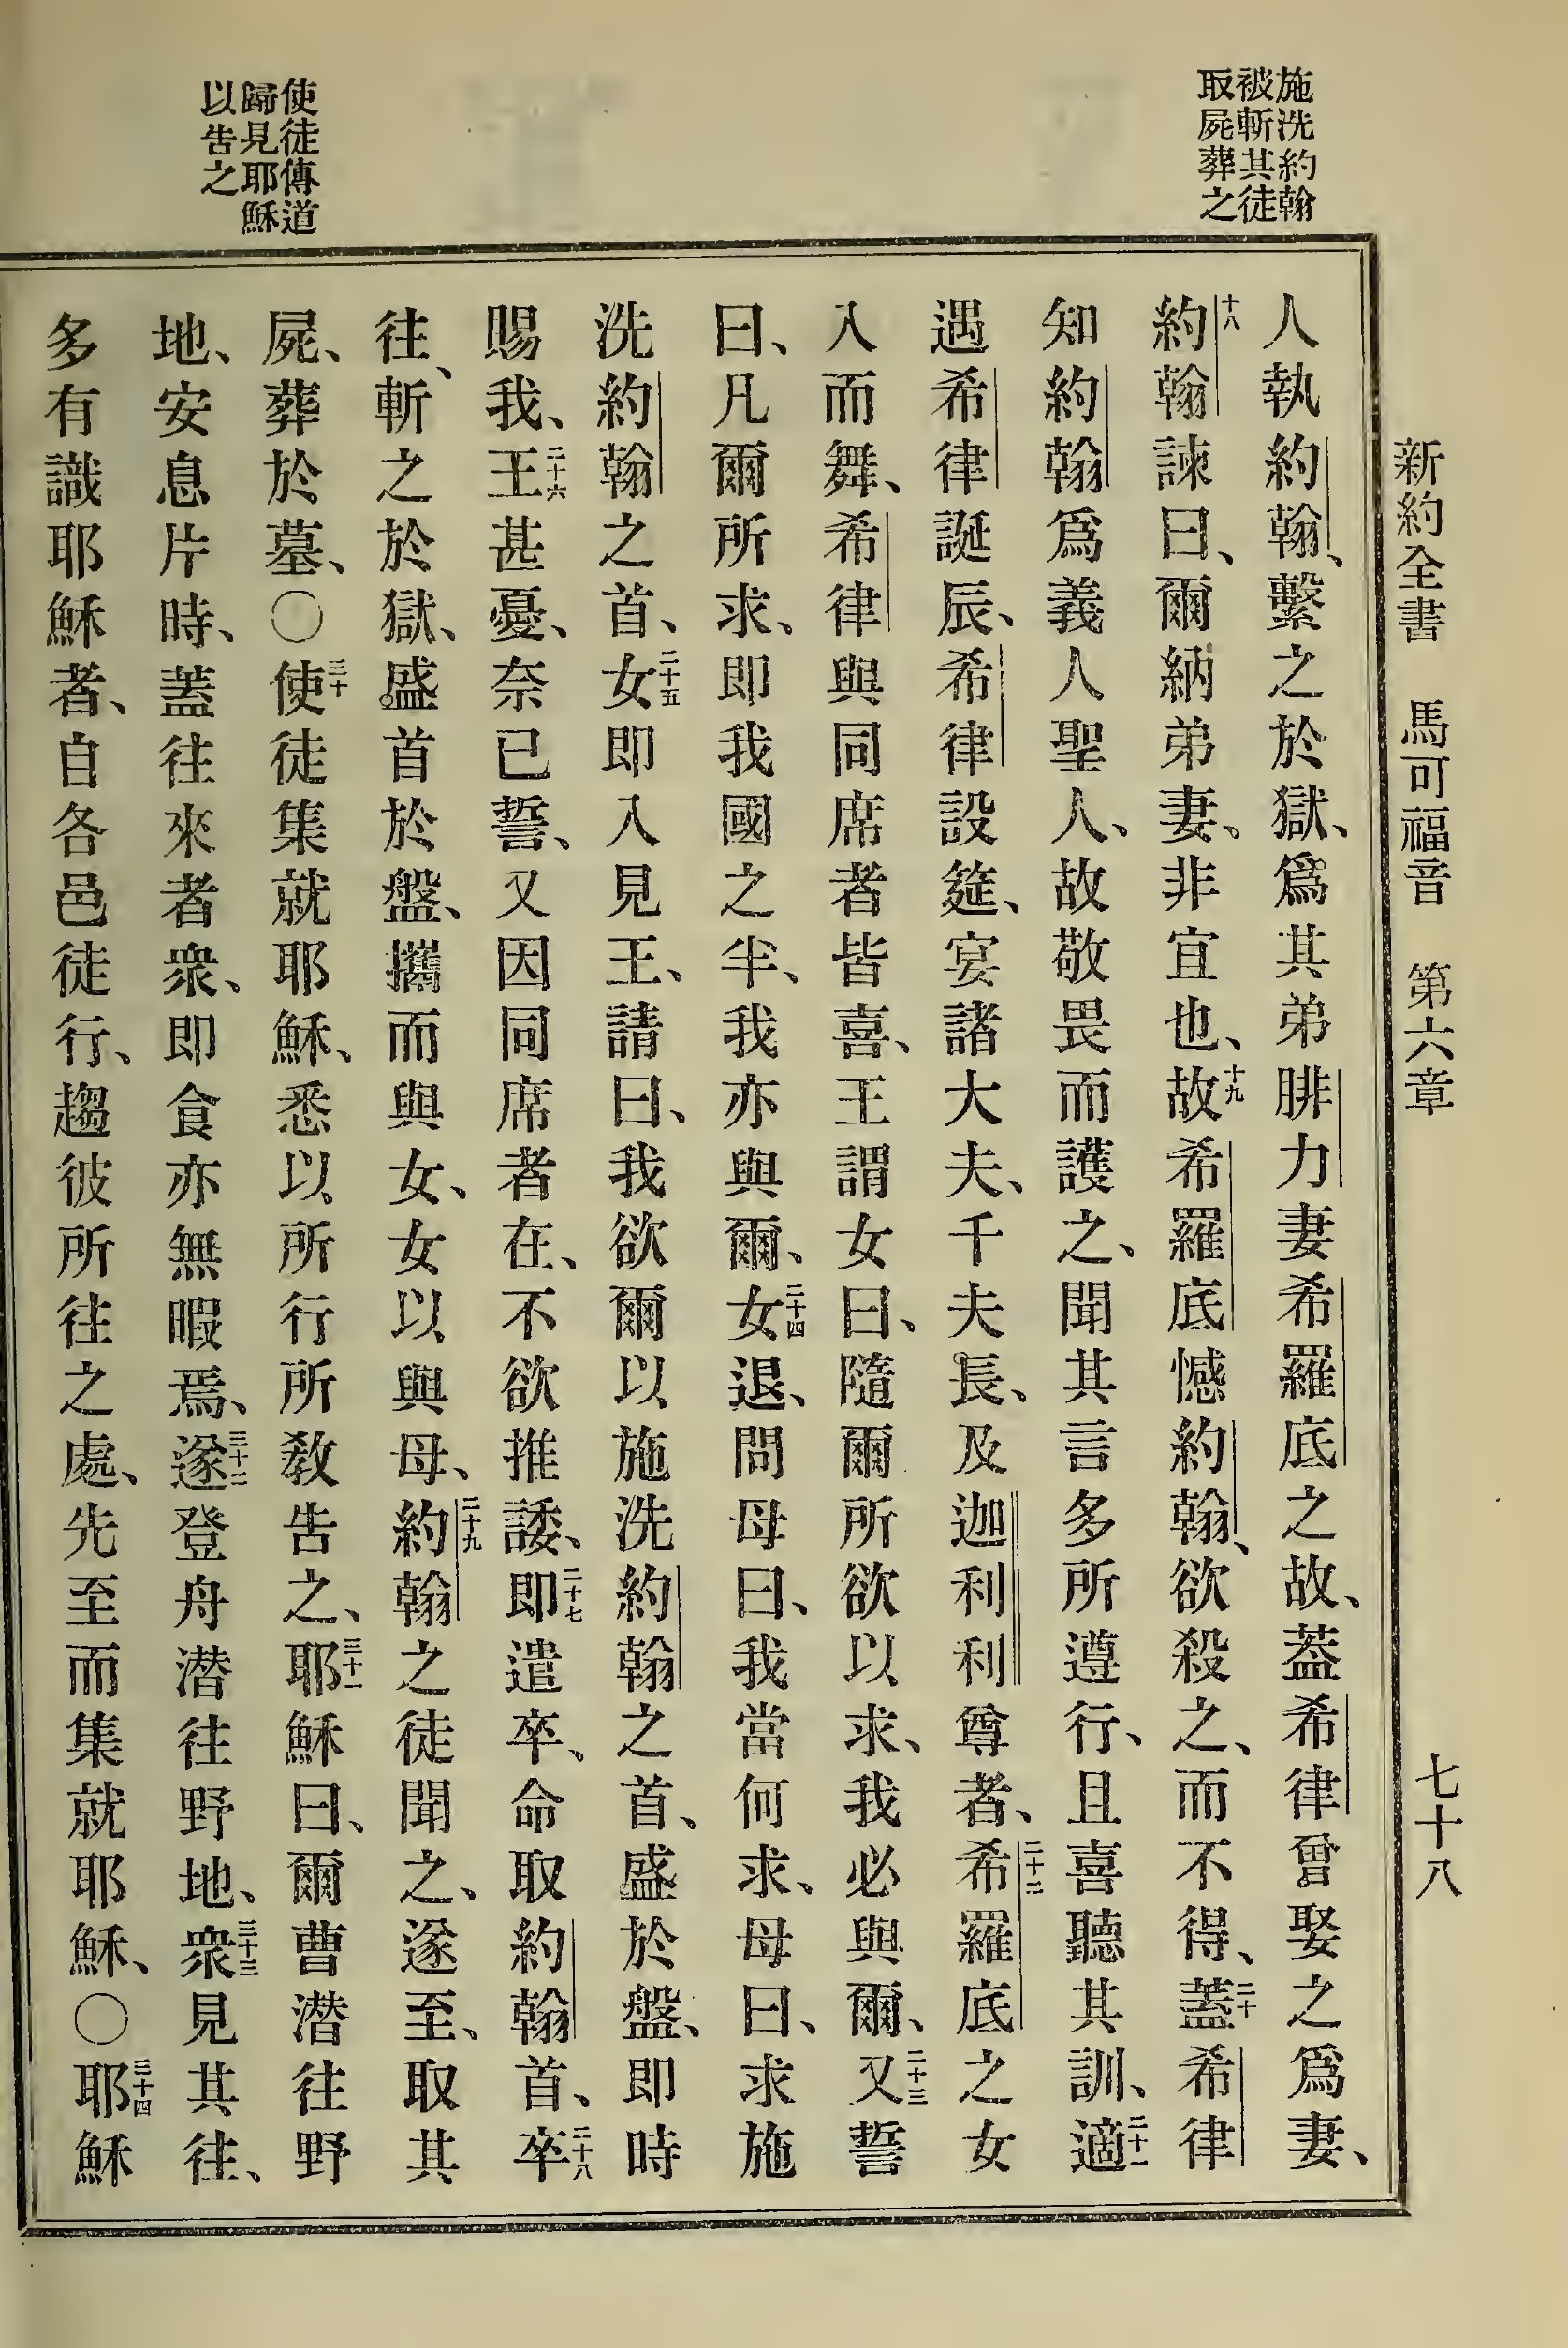 新約全書 馬可福音 第六章 七十八
施洗約翰
被斬其徒
取屍葬之
使徒傳道
歸見耶穌
以告之
人執約翰、繫之於獄、爲其弟腓力妻希羅底之故、蓋希律曾娶之爲妻、
十八約翰諫曰、爾納弟妻、非宜也、十九故希羅底憾約翰、欲殺之、而不得、二十蓋希律
知約翰爲義人聖人、故敬畏而護之、聞其言多所遵行、且喜聽其訓、二十一適
遇希律誕辰、希律設筵、宴諸大夫、千夫長、及迦利利尊者、二十二希羅底之女
入而舞、希律與同席者皆喜、王謂女曰、隨爾所欲以求、我必與爾、二十三又誓
曰、凡爾所求、即我國之半、我亦與爾、二十四女退、問母曰、我當何求、母曰、求施
洗約翰之首、二十五女即入見王、請曰、我欲爾以施洗約翰之首、盛於盤、即時
賜我、二十六王甚憂、奈已誓、又因同席者在、不欲推諉、二十七即遣卒、命取約翰首、二十八卒
往、斬之於獄、盛首於盤、攜而與女、女以與母、二十九約翰之徒聞之、遂至、取其
屍、葬於墓、○三十使徒集就耶穌、悉以所行所教告之、三十一耶穌曰、爾曹潛往野
地、安息片時、蓋往來者衆、即食亦無暇焉、三十二遂登舟潛往野地、三十三衆見其往、
多有識耶穌者、自各邑徒行、趨彼所往之處、先至而集就耶穌、○三十四耶穌